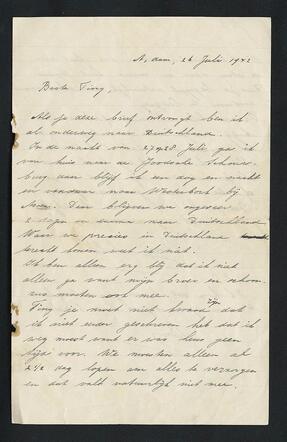 A, dam, 26 Juli 1942
Beste Tiny,
Als je deze brief ontvangt ben ik
al onderweg naar Duitschland.
In de nacht van 27/28 Juli ga ik
van huis naar de Joodsche Schouw-
burg daar blijf ik een dag en nacht
en vandaar naar Westerbork bij
Daar blijven we ongeveer
2 dagen en daarna naar Duitschland
Waar we precies in Duitschland
terecht komen weet ik niet.
Ik ben alleen erg blij dat ik niet
alleen ga want mijn broer en schoon-
zus moeten ook mee.
Tiny je moet niet kwaad zijn dat
ik niet eerder geschreven heb dat ik
weg moest want er was heus geen
tijd voor. We moesten alleen al
2½ dag lopen om alles te verzorgen
en dat valt natuurlijk niet mee.